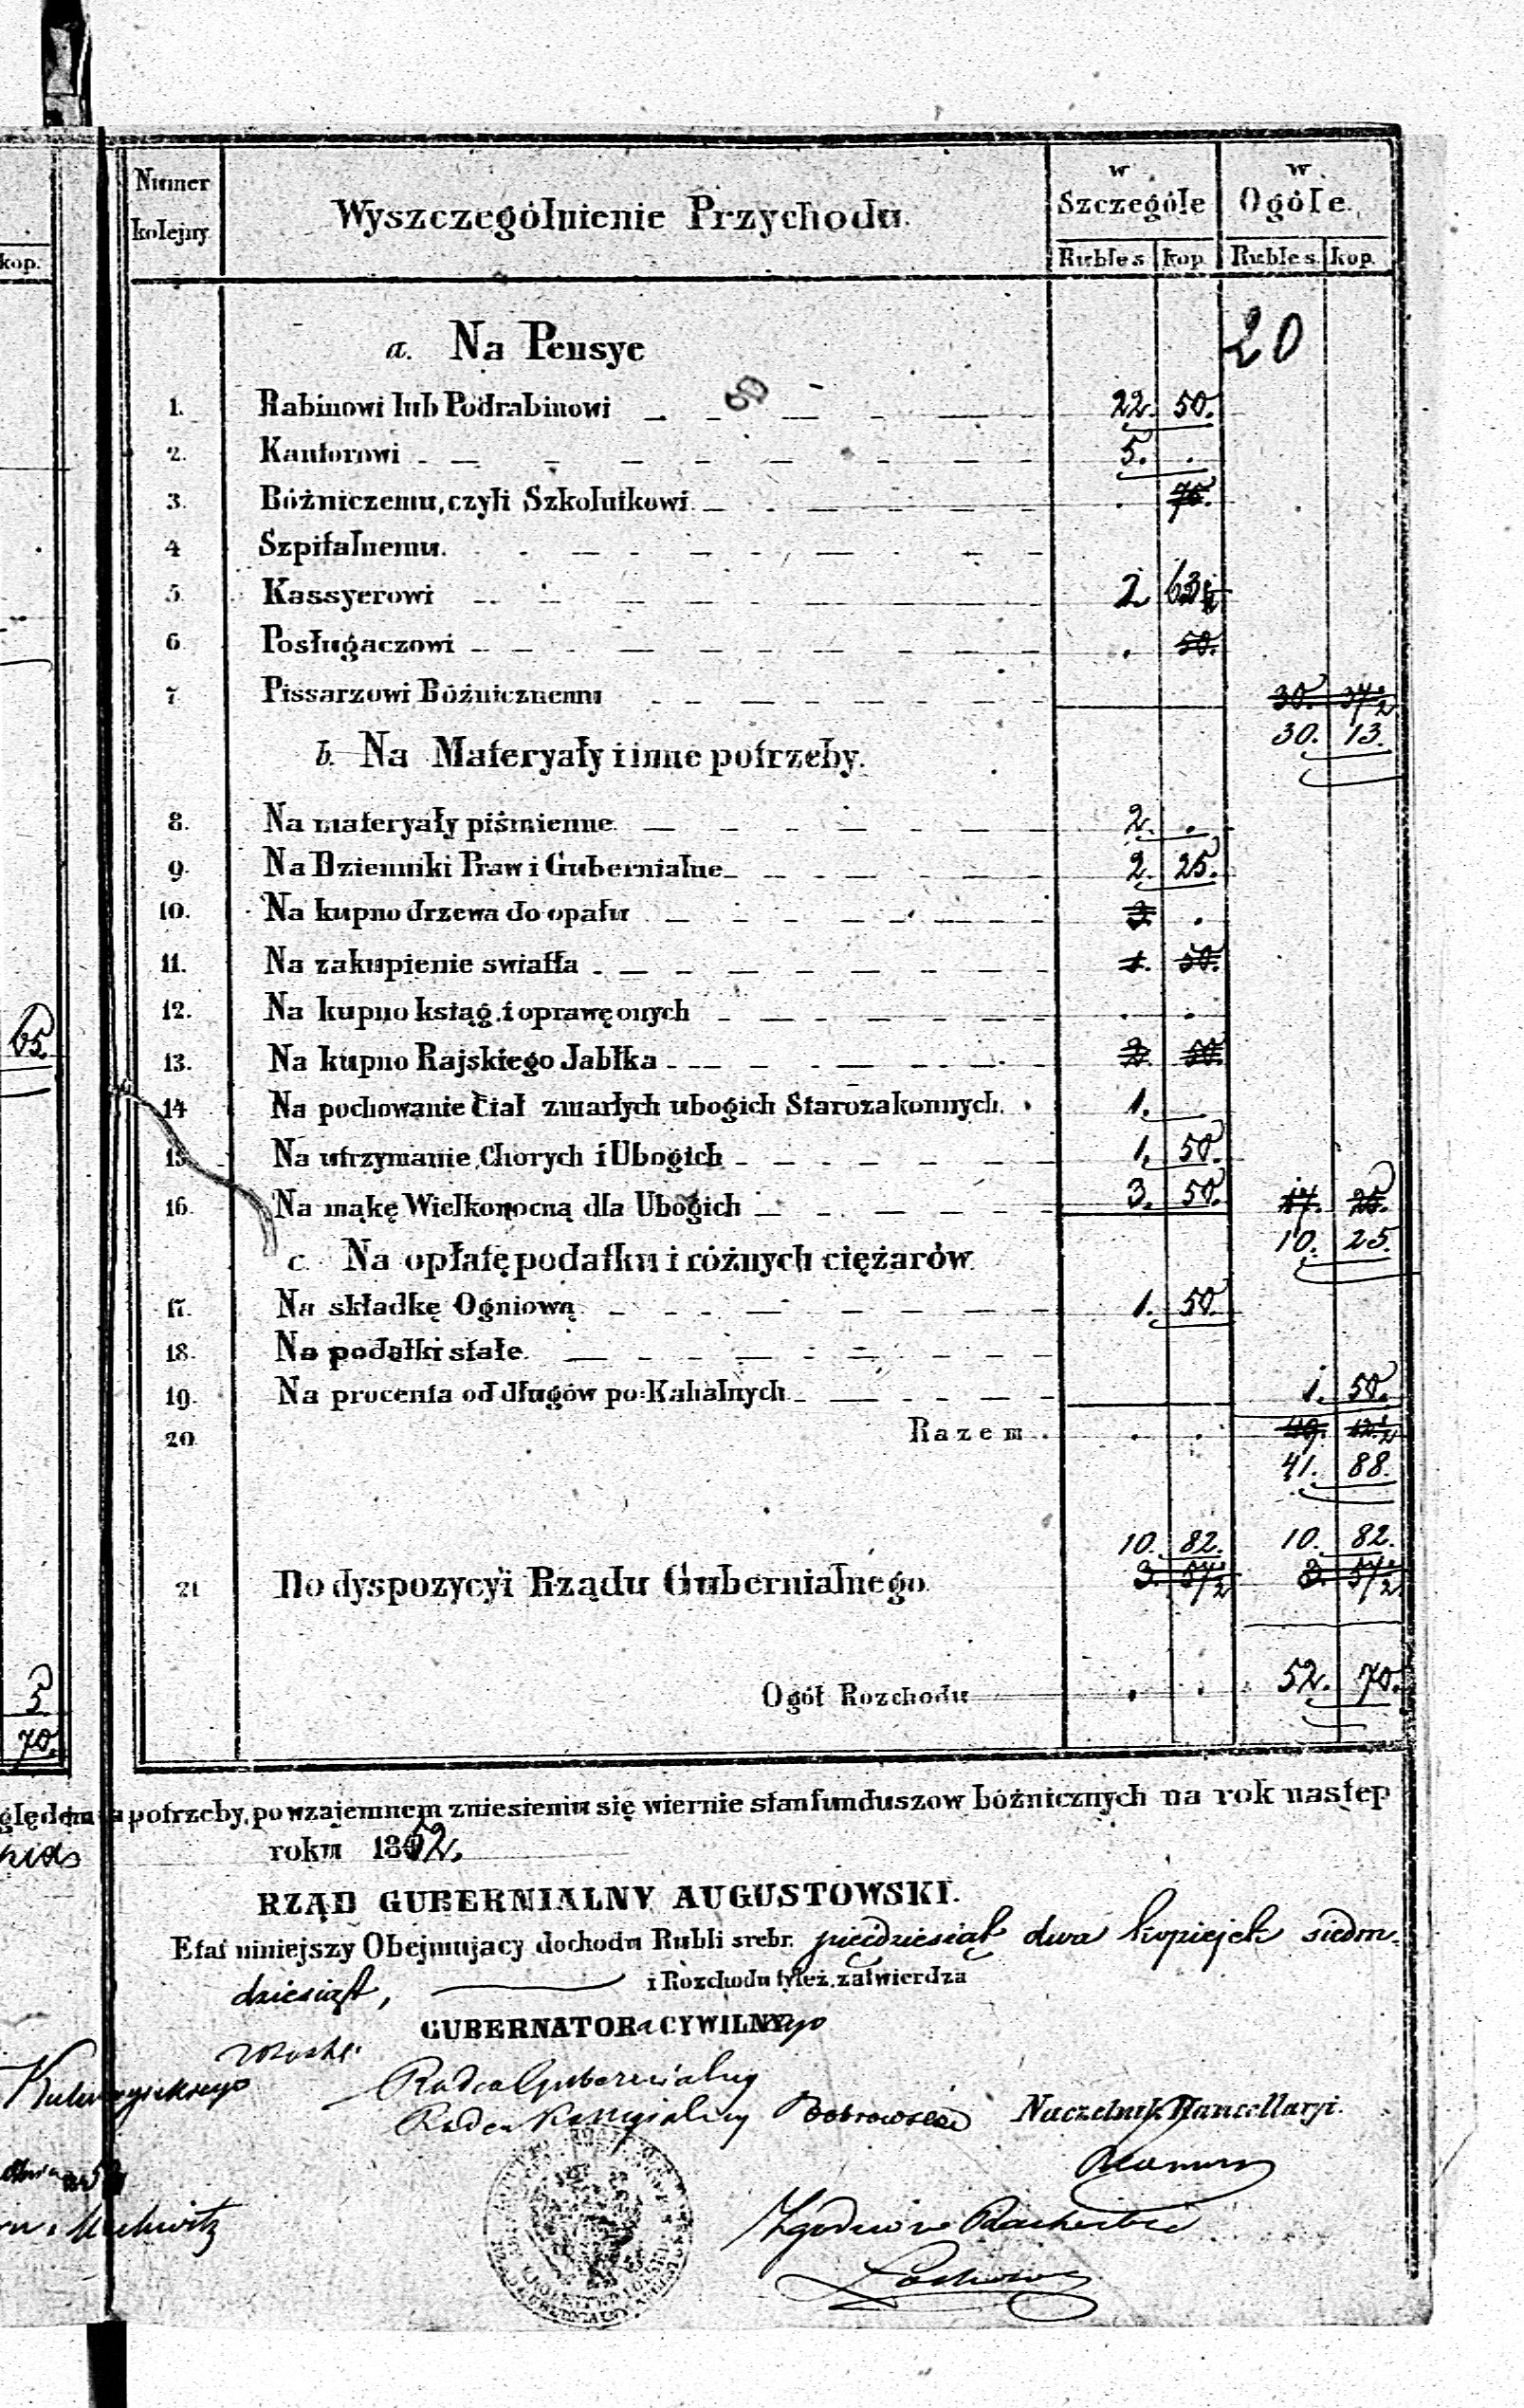 Numer kolejny Wyszczególnienie Przychodu. w Szczególe w Ogóle.
kop. Rubłe s. kop. Rubłe s. kop.
20
a. Na Pensye
1. Rabinowi lub Podrabinowi 22. 50.
2. Kantorowi 5. .
3. Bóżniczemu, czyli Szkolnikowi . 75.
4 Szpitalnemu.
5. Kassyerowi 2 63½
6. Posługaczowi . 50.
7. Pissarzowi Bóźnicznemu 30. 37½
30. 13.
b. Na Materyały i inne potrzeby.
8. Na materyały piśmienne 2. .
9. Na Dzienniki Praw i Gubernialne 2. 25.
10. Na kupno drzewa do opału 3 .
11. Na zakupienie swiatła 1. 50.
12. Na kupno ksiąg i oprawę onych . .
65.
13. Na kupno Rajskiego Jabłka 2. 50.
14 Na pochowanie Ciał zmarłych ubogich Starozakonnych. 1.
15. Na utrzymanie Chorych i Ubogich 1. 50.
16. Na mąkę Wielkonocną dla Ubogich 3. 50. 17. 25.
10. 25.
c. Na opłatę podatku i różnych ciężarów
17. Na składkę Ogniową 1. 50
18. Na podatki stałe.
19. Na procenta od długów po-Kahalnych 1. 50.
20 Razem . . 49. 12½
41. 88.
10. 82. 10. 82.
21 Do dyspozycyi Rządu Gubernialnego. 3. 57½ 3. 57½
5.
Ogół Rozchodu . . 52. 70.
70.
potrzeby, po wzajemnem zniesieniu się wiernie stan funduszow bóżnicznych na rok następ
roku 1852.
RZĄD GUBERNIALNY AUGUSTOWSKI.
Etat niniejszy Obejmujacy dochodu Rubli srebr. pięćdziesiąt dwa kopiejek siedm-
dziesiąt, i Rozchodu tyleż, zatwierdza
GUBERNATORa CYWILNego
Radca Gubernialny
Radca Naczelnik Kancellaryi.